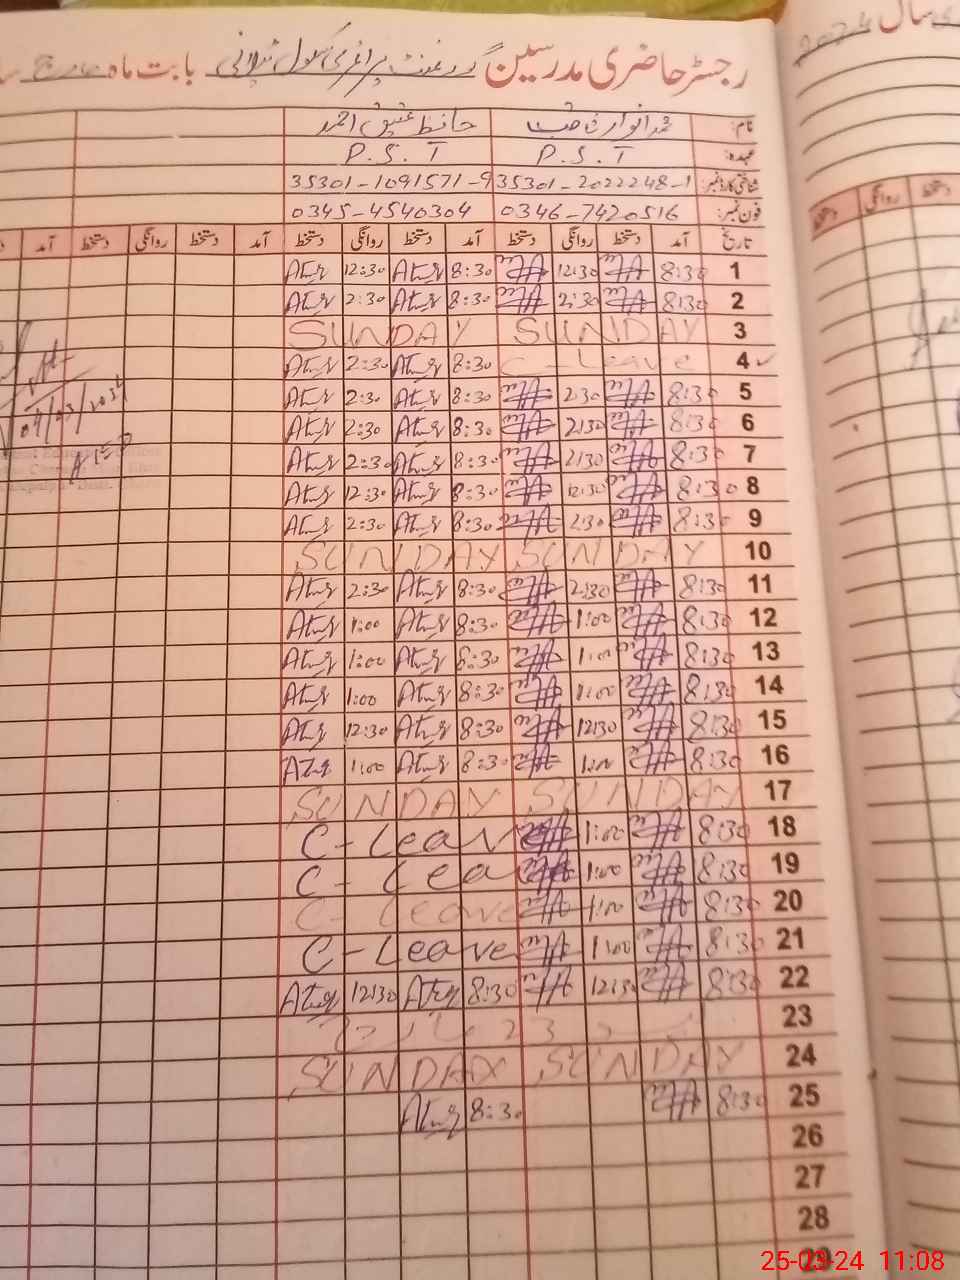 رجسٹر حاضری مدرسین گورنمنٹ پرائمری سکول بابت ماہ مارچ سال 2024
نام: محمد انوار حافظ عتیق احمد
عہدہ: P.S.T P.S.T
شناختی کارڈ نمبر: 35301-2022248-1 35301-1091571-9
فون نمبر: 0346-7420516 0345-4540304
تاریخ آمد دستخط روانگی دستخط آمد دستخط روانگی دستخط آمد دستخط روانگی دستخط آمد
1 8:30 12:30 8:30 Atiq 12:30 Atiq
2 8:30 2:30 8:30 Atiq 2:30 Atiq
3 SUNDAY SUNDAY
4 C-Leave 8:30 Atiq 2:30 Atiq
5 8:30 2:30 8:30 Atiq 2:30 Atiq
6 8:30 2:30 8:30 Atiq 2:30 Atiq
7 8:30 2:30 8:30 Atiq 2:30 Atiq
8 8:30 12:30 8:30 Atiq 12:30 Atiq
9 8:30 2:30 8:30 Atiq 2:30 Atiq
10 SUNDAY SUNDAY
11 8:30 2:30 8:30 Atiq 2:30 Atiq
12 8:30 1:00 8:30 Atiq 1:00 Atiq
13 8:30 1:00 8:30 Atiq 1:00 Atiq
14 8:30 1:00 8:30 Atiq 1:00 Atiq
15 8:30 12:30 8:30 Atiq 12:30 Atiq
16 8:30 1:00 8:30 Atiq 1:00 Atiq
17 SUNDAY SUNDAY
18 8:30 1:00 C-Leave
19 8:30 1:00 C-Leave
20 8:30 1:00 C-Leave
21 8:30 1:00 C-Leave
22 8:30 12:30 8:30 Atiq 12:30 Atiq
23 23 مارچ
24 SUNDAY SUNDAY
25 8:30 8:30 Atiq
26
27
28
29
دستخط روانگی دستخط
25-03-24 11:08